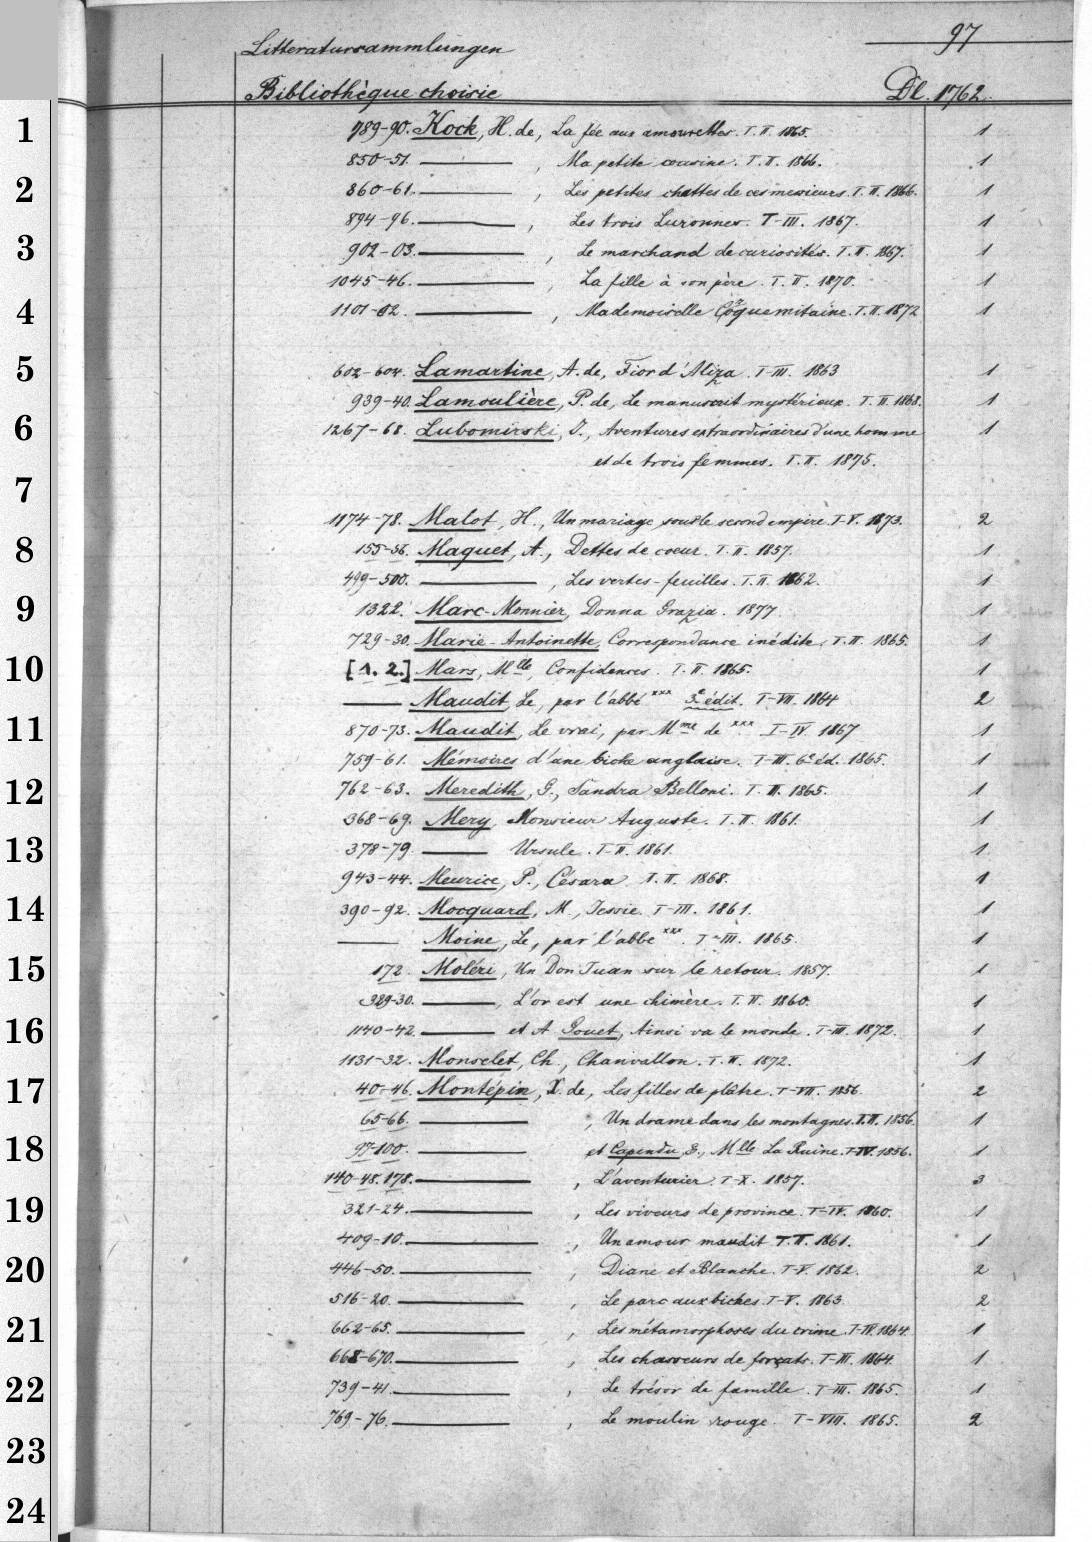 97
Litteratursammlungen
Bibliothèque choisie Dl. 1762.
1 789-90. Kock, H. de, La fée aux amourettes. T.II. 1865. 1
850-51. ——— , Ma petite cousine. T.II. 1866. 1
2 860-61. ——— , Les petites chattes de ces messieurs. T.II. 1866. 1
894-96. ——— , Les trois Luronnes. T-III. 1867. 1
3 902-03. ——— , Le marchand de curiosités. T.II. 1867. 1
1045-46. ——— , La fille à son père. T.II. 1870. 1
4 1101-02. ——— , Mademoiselle Croquemitaine. T.II. 1872 1
5 602-604. Lamartine, A. de, Fior d'Aliza. T-III. 1863 1
939-40. Lamoulière, P. de, Le manuscrit mystérieux. T.II. 1868. 1
6 1267-68. Lubomirski, J., Aventures extraordinaires d'une homme 1
et de trois femmes. T.II. 1875.
7
1174-78. Malot, H., Un mariage sous le second empire. T-V. 1873. 2
8 155-56. Maquet, A., Dettes de coeur. T.II. 1857. 1
499-500. ——— , Les vertes-feuilles. T.II. 1862. 1
9 1322. Marc-Monnier, Donna Grazia. 1877. 1
729-30. Marie-Antoinette, Correspondance inédite. T.II. 1865. 1
10 [1. 2.] Mars, Mlle, Confidences. T.II. 1865. 1
——— Maudit, Le, par l'abbé xxx 3e édit. T-VII. 1864 2
11 870-73. Maudit, Le vrai, par Mme de xxx I-IV. 1867 1
759-61. Mémoires d'une biche anglaise. T-III. 6e éd. 1865. 1
12 762-63. Meredith, G., Sandra Belloni. T.II. 1865. 1
368-69. Mery, Monsieur Auguste. T.II. 1861. 1
13 378-79. ——— Ursule. T-II. 1861. 1
943-44. Meurice, P., Césara. T.II. 1868. 1
14 390-92. Mocquard, M., Jessie. T-III. 1861. 1
——— Moine, Le, par l'abbé xxx. T-III. 1865. 1
15 172. Moléri, Un Don Juan sur le retour. 1857. 1
329-30. ——— , L'or est une chimère. T.II. 1860. 1
16 1140-42. ——— et A Gouet, Ainsi va le monde. T-III. 1872. 1
1131-32. Monselet, Ch., Chanvallon. T.II. 1872. 1
17 40-46. Montépin, X. de, Les filles de plâtre. T-VII. 1856. 2
65-66. ——— , Un drame dans les montagnes. T.II. 1856. 1
18 97-100. ——— et Capendu, E., Mlle La Ruine. T-IV. 1856. 1
140-48. 178. ——— , L'aventurier. T-X. 1857. 3
19 321-24. ——— , Les viveurs de province. T-IV. 1860. 1
409-10. ——— , Un amour maudit T.II. 1861. 1
20 446-50. ——— , Diane et Blanche. T-V. 1862. 2
516-20. ——— , Le parc aux biches. T-V. 1863. 2
21 662-65. ——— , Les métamorphoses du crime. T-IV. 1864. 1
668-670. ——— , Les chasseurs de forçats. T-III. 1864. 1
22 739-41. ——— , Le trésor de famille. T-III. 1865. 1
769-76. ——— , Le moulin rouge. T-VIII. 1865. 2
23
24